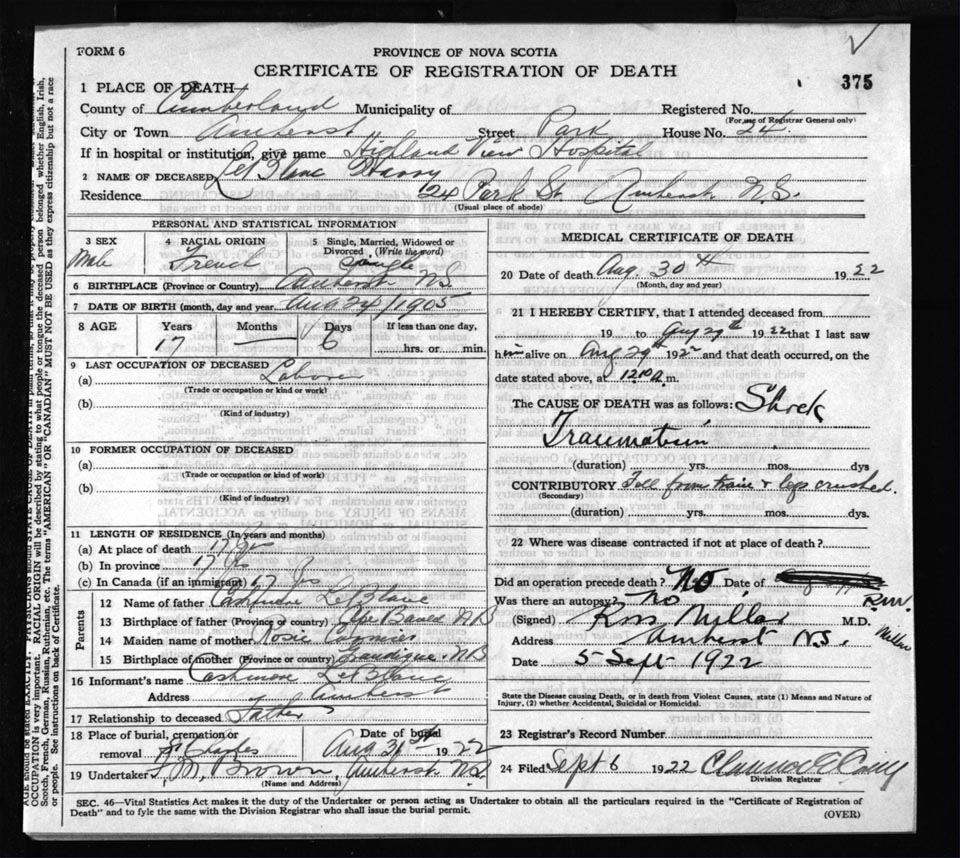 FORM 6
PROVINCE OF NOVA SCOTIA
CERTIFICATE OF REGISTRATION OF DEATH
375
1 PLACE OF DEATH
County of Cumberland Municipality of Registered No.
(For use of Registrar General only)
City or Town Amherst Street Park House No. 24.
If in hospital or institution, give name Highland View Hospital
2 NAME OF DECEASED LeBlanc Harry
Residence 24 Park St. Amherst N.S.
(Usual place of abode)
PERSONAL AND STATISTICAL INFORMATION
3 SEX 4 RACIAL ORIGIN 5 Single, Married, Widowed or Divorced (Write the word)
Male French Single
6 BIRTHPLACE (Province or Country) Amherst NS.
7 DATE OF BIRTH (month, day and year) Aug 24/1905
8 AGE Years Months Days If less than one day,
17 — 6 hrs. or min.
9 LAST OCCUPATION OF DECEASED
(a) Laborer
(Trade or occupation or kind or work)
(b)
(Kind of industry)
10 FORMER OCCUPATION OF DECEASED
(a)
(Trade or occupation or kind of work)
(b)
(Kind of industry)
11 LENGTH OF RESIDENCE (In years and months)
(a) At place of death 17 yrs
(b) In province 17 yrs
(c) In Canada (if an immigrant) 17 yrs
Parents
12 Name of father LeBlanc
13 Birthplace of father (Province or country) NB
14 Maiden name of mother Rosie Cormier
15 Birthplace of mother (Province or country) NB
16 Informant's name LeBlanc
Address Amherst
17 Relationship to deceased Father
18 Place of burial, cremation or removal St Charles Date of burial Aug 31st 1922
19 Undertaker Brown, Amherst NS.
(Name and Address)
MEDICAL CERTIFICATE OF DEATH
20 Date of death Aug. 30th 1922
(Month, day and year)
21 I HEREBY CERTIFY, that I attended deceased from
19 to Aug 29th 1922 that I last saw
him alive on Aug 29th 1922 and that death occurred, on the
date stated above, at 12.10 a.m.
The CAUSE OF DEATH was as follows: Shock
Traumatism
(duration) yrs. mos. dys
CONTRIBUTORY Fell from train & legs crushed.
(Secondary)
(duration) yrs. mos. dys.
22 Where was disease contracted if not at place of death?
Did an operation precede death? No. Date of
Was there an autopsy? No R.M.
(Signed) Ross Millar M.D.
Millar
Address Amherst N.S.
Date 5 Sept 1922
State the Disease causing Death, or in death from Violent Causes, state (1) Means and Nature of
Injury, (2) whether Accidental, Suicidal or Homicidal.
23 Registrar's Record Number
24 Filed Sept 6 1922
Division Registrar
SEC. 46—Vital Statistics Act makes it the duty of the Undertaker or person acting as Undertaker to obtain all the particulars required in the "Certificate of Registration of
Death" and to fyle the same with the Division Registrar who shall issue the burial permit.
(OVER)
OCCUPATION is very important. RACIAL ORIGIN will be described by stating to what people or tongue the deceased person belonged whether English, Irish,
Scotch, French, German, Russian, Ruthenian, etc. The terms "AMERICAN" OR "CANADIAN" MUST NOT BE USED as they express citizenship but not a race
or people. See instructions on back of Certificate.